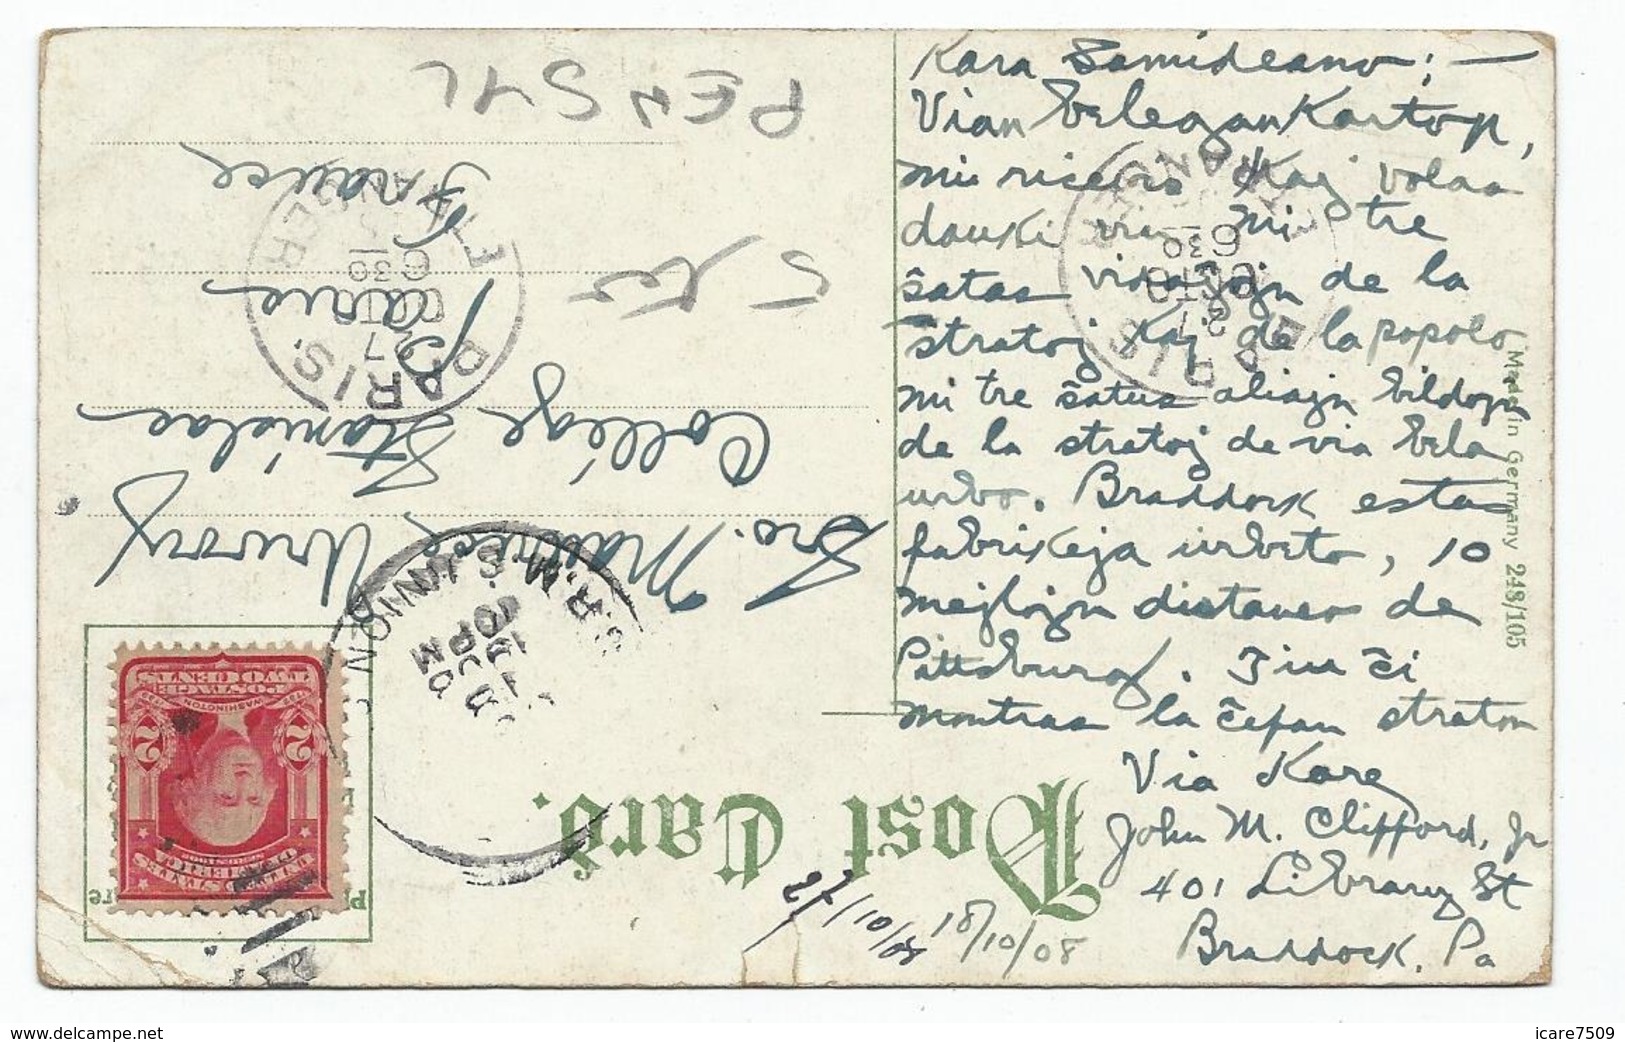 Kara Samideano; —
Vian belegan Karton,
mi ricevis kaj volas
danki vin. Mi tre
ŝatas vidojn de la
stratoj Kaj de la popolo
mi tre ŝatus aliajn bildojn
de la stratoj de via bela
urbo. Braddock estas
fabrikeja urbeto, 10
mejlojn distance de
Pittsburg. Tiu ĉi
montras la ĉefan straton
Via Kara
John M. Clifford, Jr
401 Library St
Braddock, Pa
Made in Germany 248/105
Post Card.
Sro. Maurice
Collége Stanislas
Paris
France
PENSYL
18/10/08
PARIS
ETRANGER
27
630
PARIS
ETRANGER
27
630
R.M.S.
10 PM
U.S. AMERICA
SERIES 1902
WASHINGTON
POSTAGE
TWO CENTS
2 2
icare7509